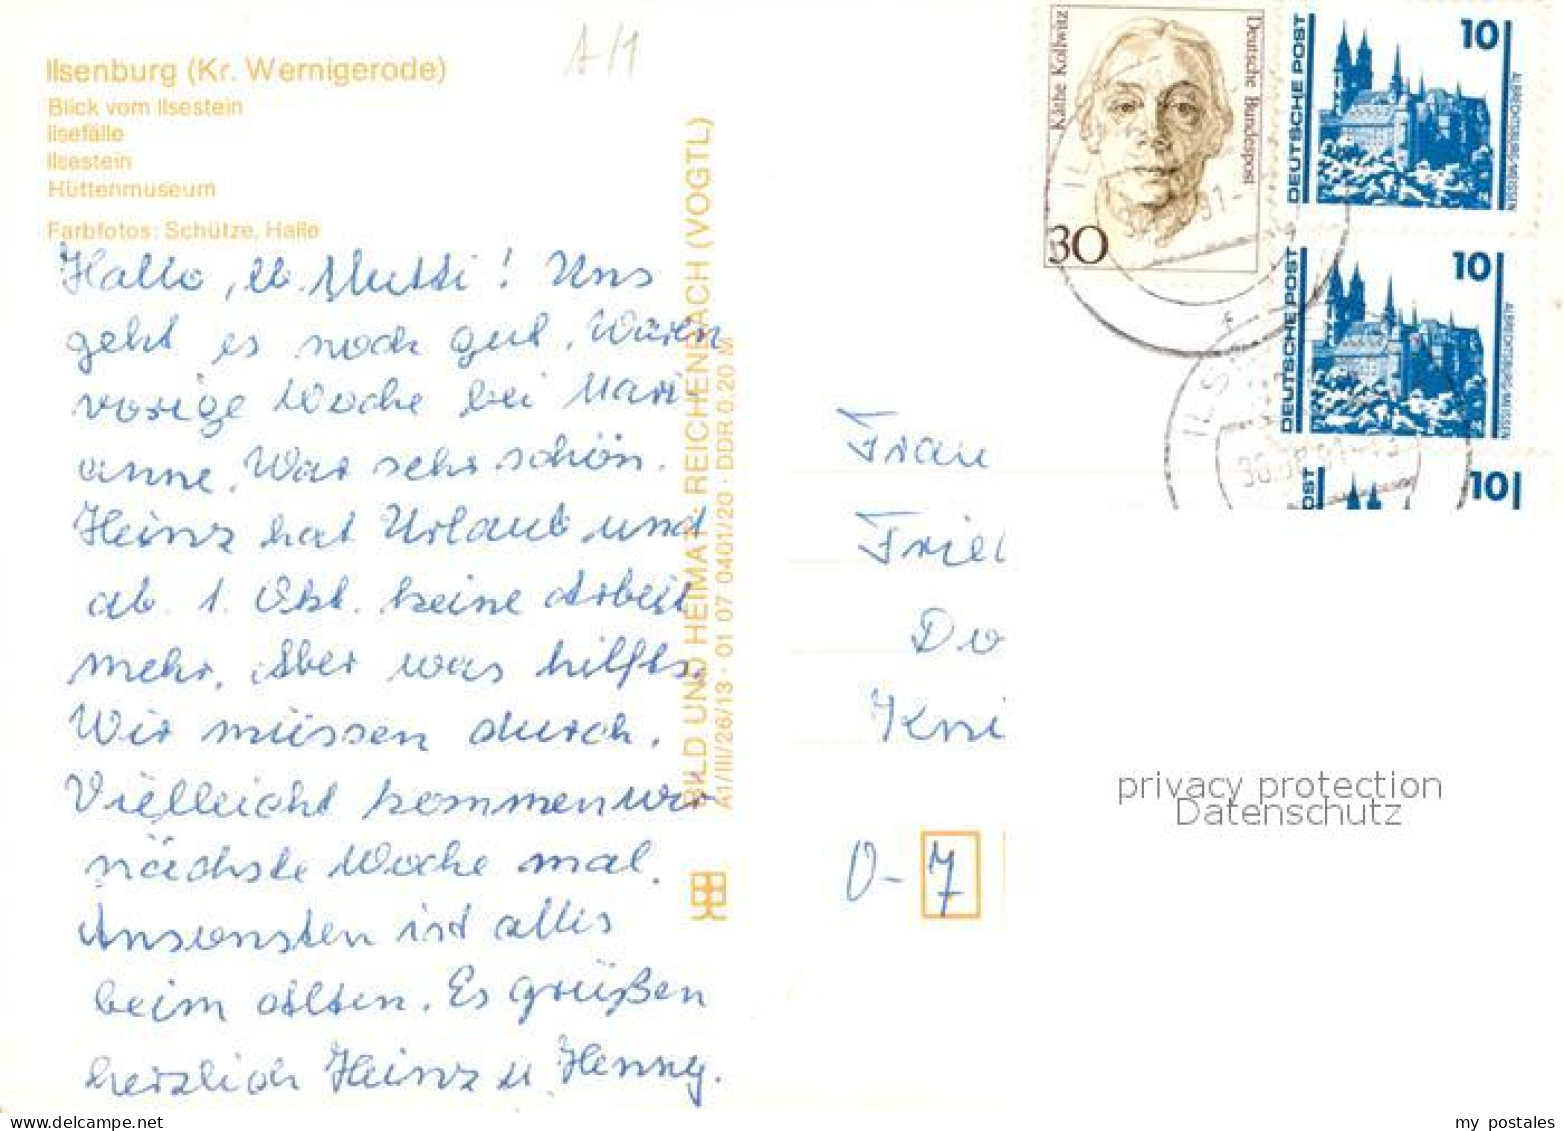 Ilsenburg (Kr. Wernigerode)
Blick vom Ilsestein
Ilsefälle
Ilsestein
Hüttenmuseum
Farbfotos: Schütze, Halle
A/1
Hallo, lb. Mutti! Uns
geht es noch gut. Waren
vorige Woche bei Mari
anne. War sehr schön.
Heinz hat Urlaub und
ab 1. Okt. keine Arbeit
mehr. Aber was hilfts.
Wir müssen durch.
Vielleicht kommen wir
nächste Woche mal.
Ansonsten ist alles
beim alten. Es grüßen
herzlich Heinz u. Henny.
BILD UND HEIMAT · REICHENBACH (VOGTL)
A1/III/26/13 · 01 07 0401/20 · DDR 0,20 M
Käthe Kollwitz
Deutsche Bundespost
30
DEUTSCHE POST
10
ALBRECHTSBURG·MEISSEN
DEUTSCHE POST
10
ALBRECHTSBURG·MEISSEN
OST
10
Frau
Fried
Do
Kni
O-7
privacy protection
Datenschutz
www.delcampe.net
my_postales